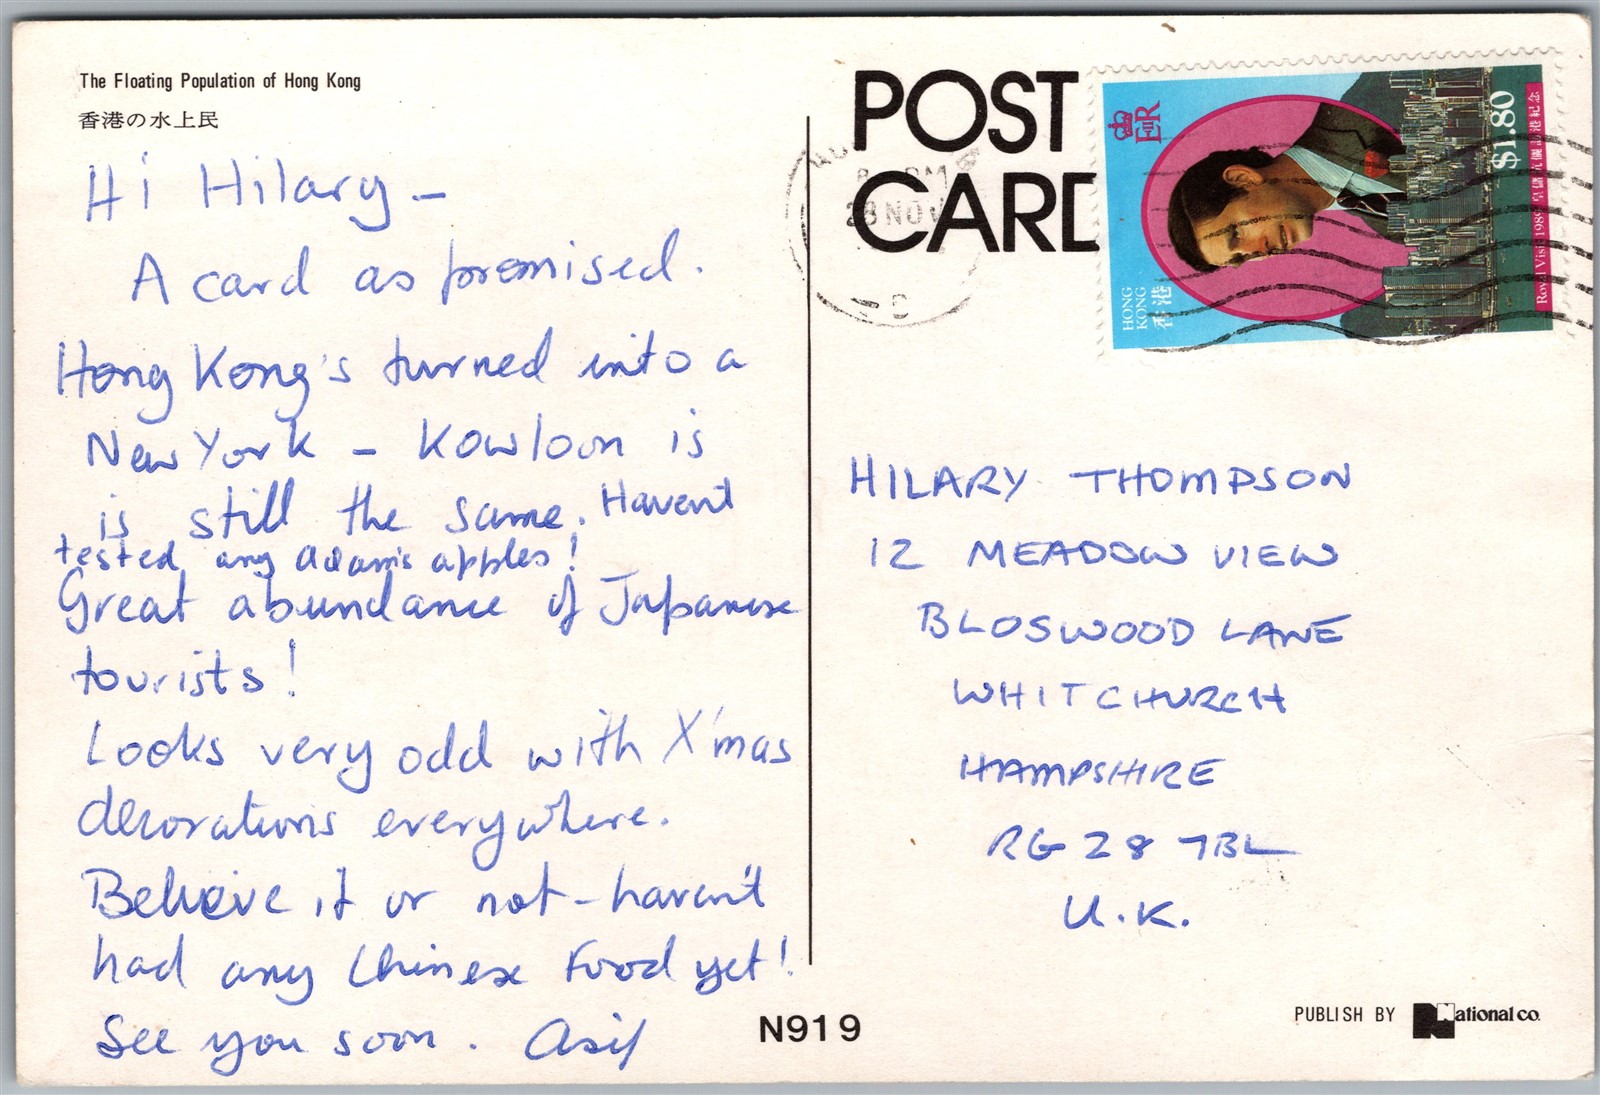 The Floating Population of Hong Kong
香港の水上民
Hi Hilary –
A card as promised.
Hong Kong's turned into a
New York – Kowloon is
is still the same. Havent
tested any Adam's apples!
Great abundance of Japanese
tourists!
Looks very odd with X'mas
decorations everywhere.
Believe it or not – haven't
had any Chinese Food yet!
See you soon. Asif
POST
CARD
28 NOV
EIIR
HONG
KONG
香港
$1.80
Royal Visit 1989 皇儲伉儷訪港紀念
HILARY THOMPSON
12 MEADOW VIEW
BLOSWOOD LANE
WHITCHURCH
HAMPSHIRE
RG28 7BL
U.K.
N919
PUBLISH BY National co.